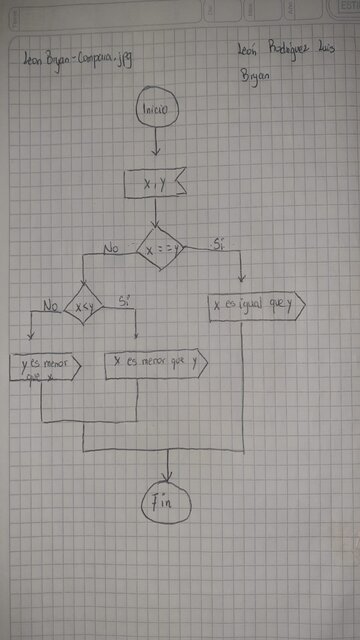 Leon Bryan-Compara.jpg
León Rodríguez Luis
Bryan
Inicio
x, y
No
x==y
Si
No
x<y
Si
x es igual que y
y es menor
que x
x es menor que y
Fin